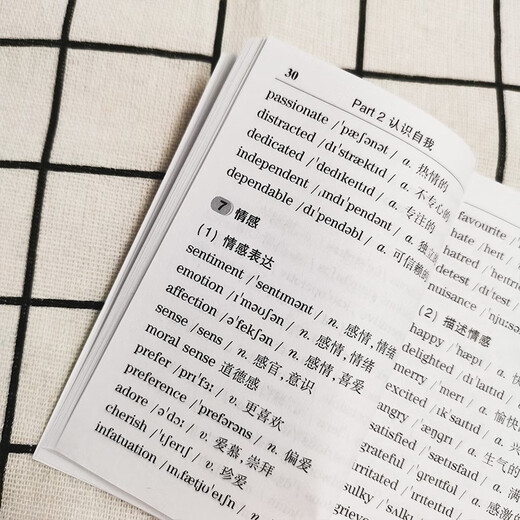 30
Part 2 认识自我
passionate /ˈpæʃənət/ a. 热情的
distracted /dɪˈstræktɪd/ a. 不专心的
dedicated /ˈdedɪkeɪtɪd/ a. 专注的
independent /ˌɪndɪˈpendənt/ a. 独立的
dependable /dɪˈpendəbl/ a. 可信赖的
7 情感
(1) 情感表达
sentiment /ˈsentɪmənt/ n. 感情,情绪
emotion /ɪˈməʊʃən/ n. 感情,情绪
affection /əˈfekʃən/ n. 感情,喜爱
sense /sens/ n. 感官,意识
moral sense 道德感
prefer /prɪˈfɜː/ v. 更喜欢
preference /ˈprefərəns/ n. 偏爱
adore /əˈdɔː/ v. 爱慕,崇拜
cherish /ˈtʃerɪʃ/ v. 珍爱
infatuation /ɪnˌfætjʊˈeɪʃn/
favourite
hate /heɪt
hatred /ˈheɪtrɪd
detest /dɪˈtest
nuisance /ˈnjuːs
(2) 描述情感
happy /ˈhæpɪ/ a. 快
delighted /dɪˈlaɪtɪd/
merry /ˈmerɪ/ a. 愉快
excited /ɪkˈsaɪtɪd/ a. 兴
angry /ˈæŋgrɪ/ a. 生气的
satisfied /ˈsætɪsfaɪd/ a. 满
grateful /ˈgreɪtfəl/ a. 感激的
irritated /ˈɪrɪteɪtɪd/
sulky /ˈsʌlkɪ/